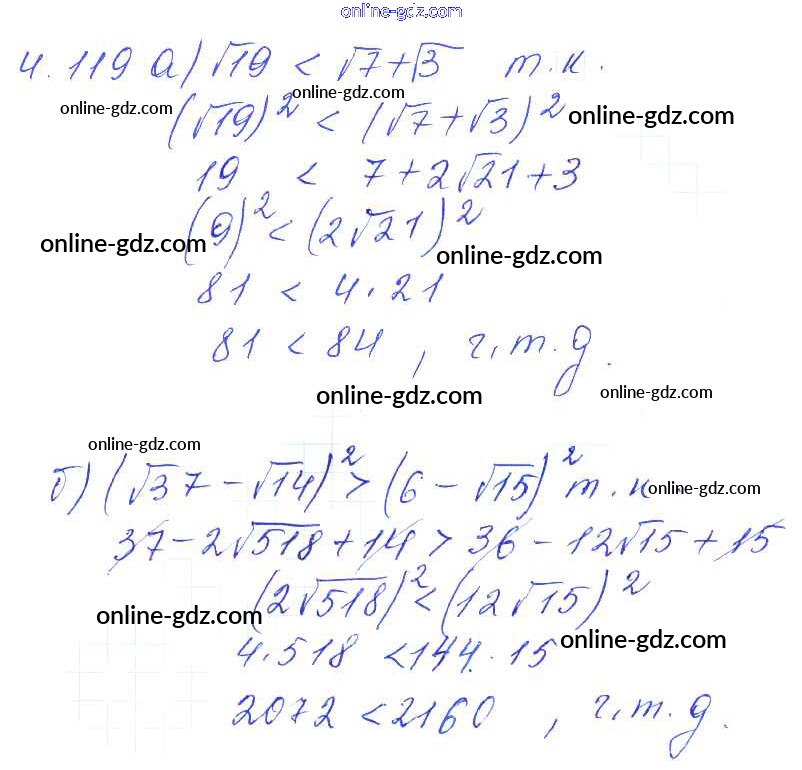 online-gdz.com
4.119 а) √19 < √7+√3 т.к.
online-gdz.com online-gdz.com
(√19)² < (√7+√3)² online-gdz.com
19 < 7+2√21+3
(9)² < (2√21)²
online-gdz.com online-gdz.com
81 < 4·21
81 < 84, ч.т.д.
online-gdz.com online-gdz.com
online-gdz.com
б) (√37 - √14)² > (6 - √15)² т.к. online-gdz.com
37-2√518+14 > 36-12√15+15
(2√518)² < (12√15)²
online-gdz.com
4·518 < 144·15 online-gdz.com
2072 < 2160, ч.т.д.